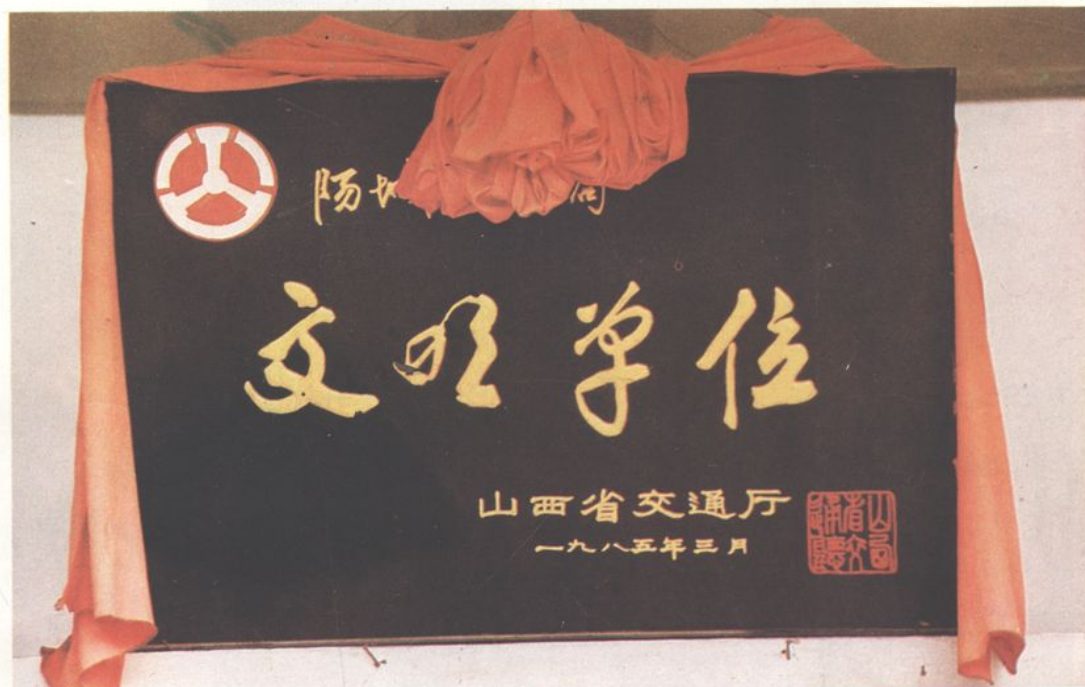 阳城 局
文明单位
山西省交通厅
一九八五年三月
山西省交通厅